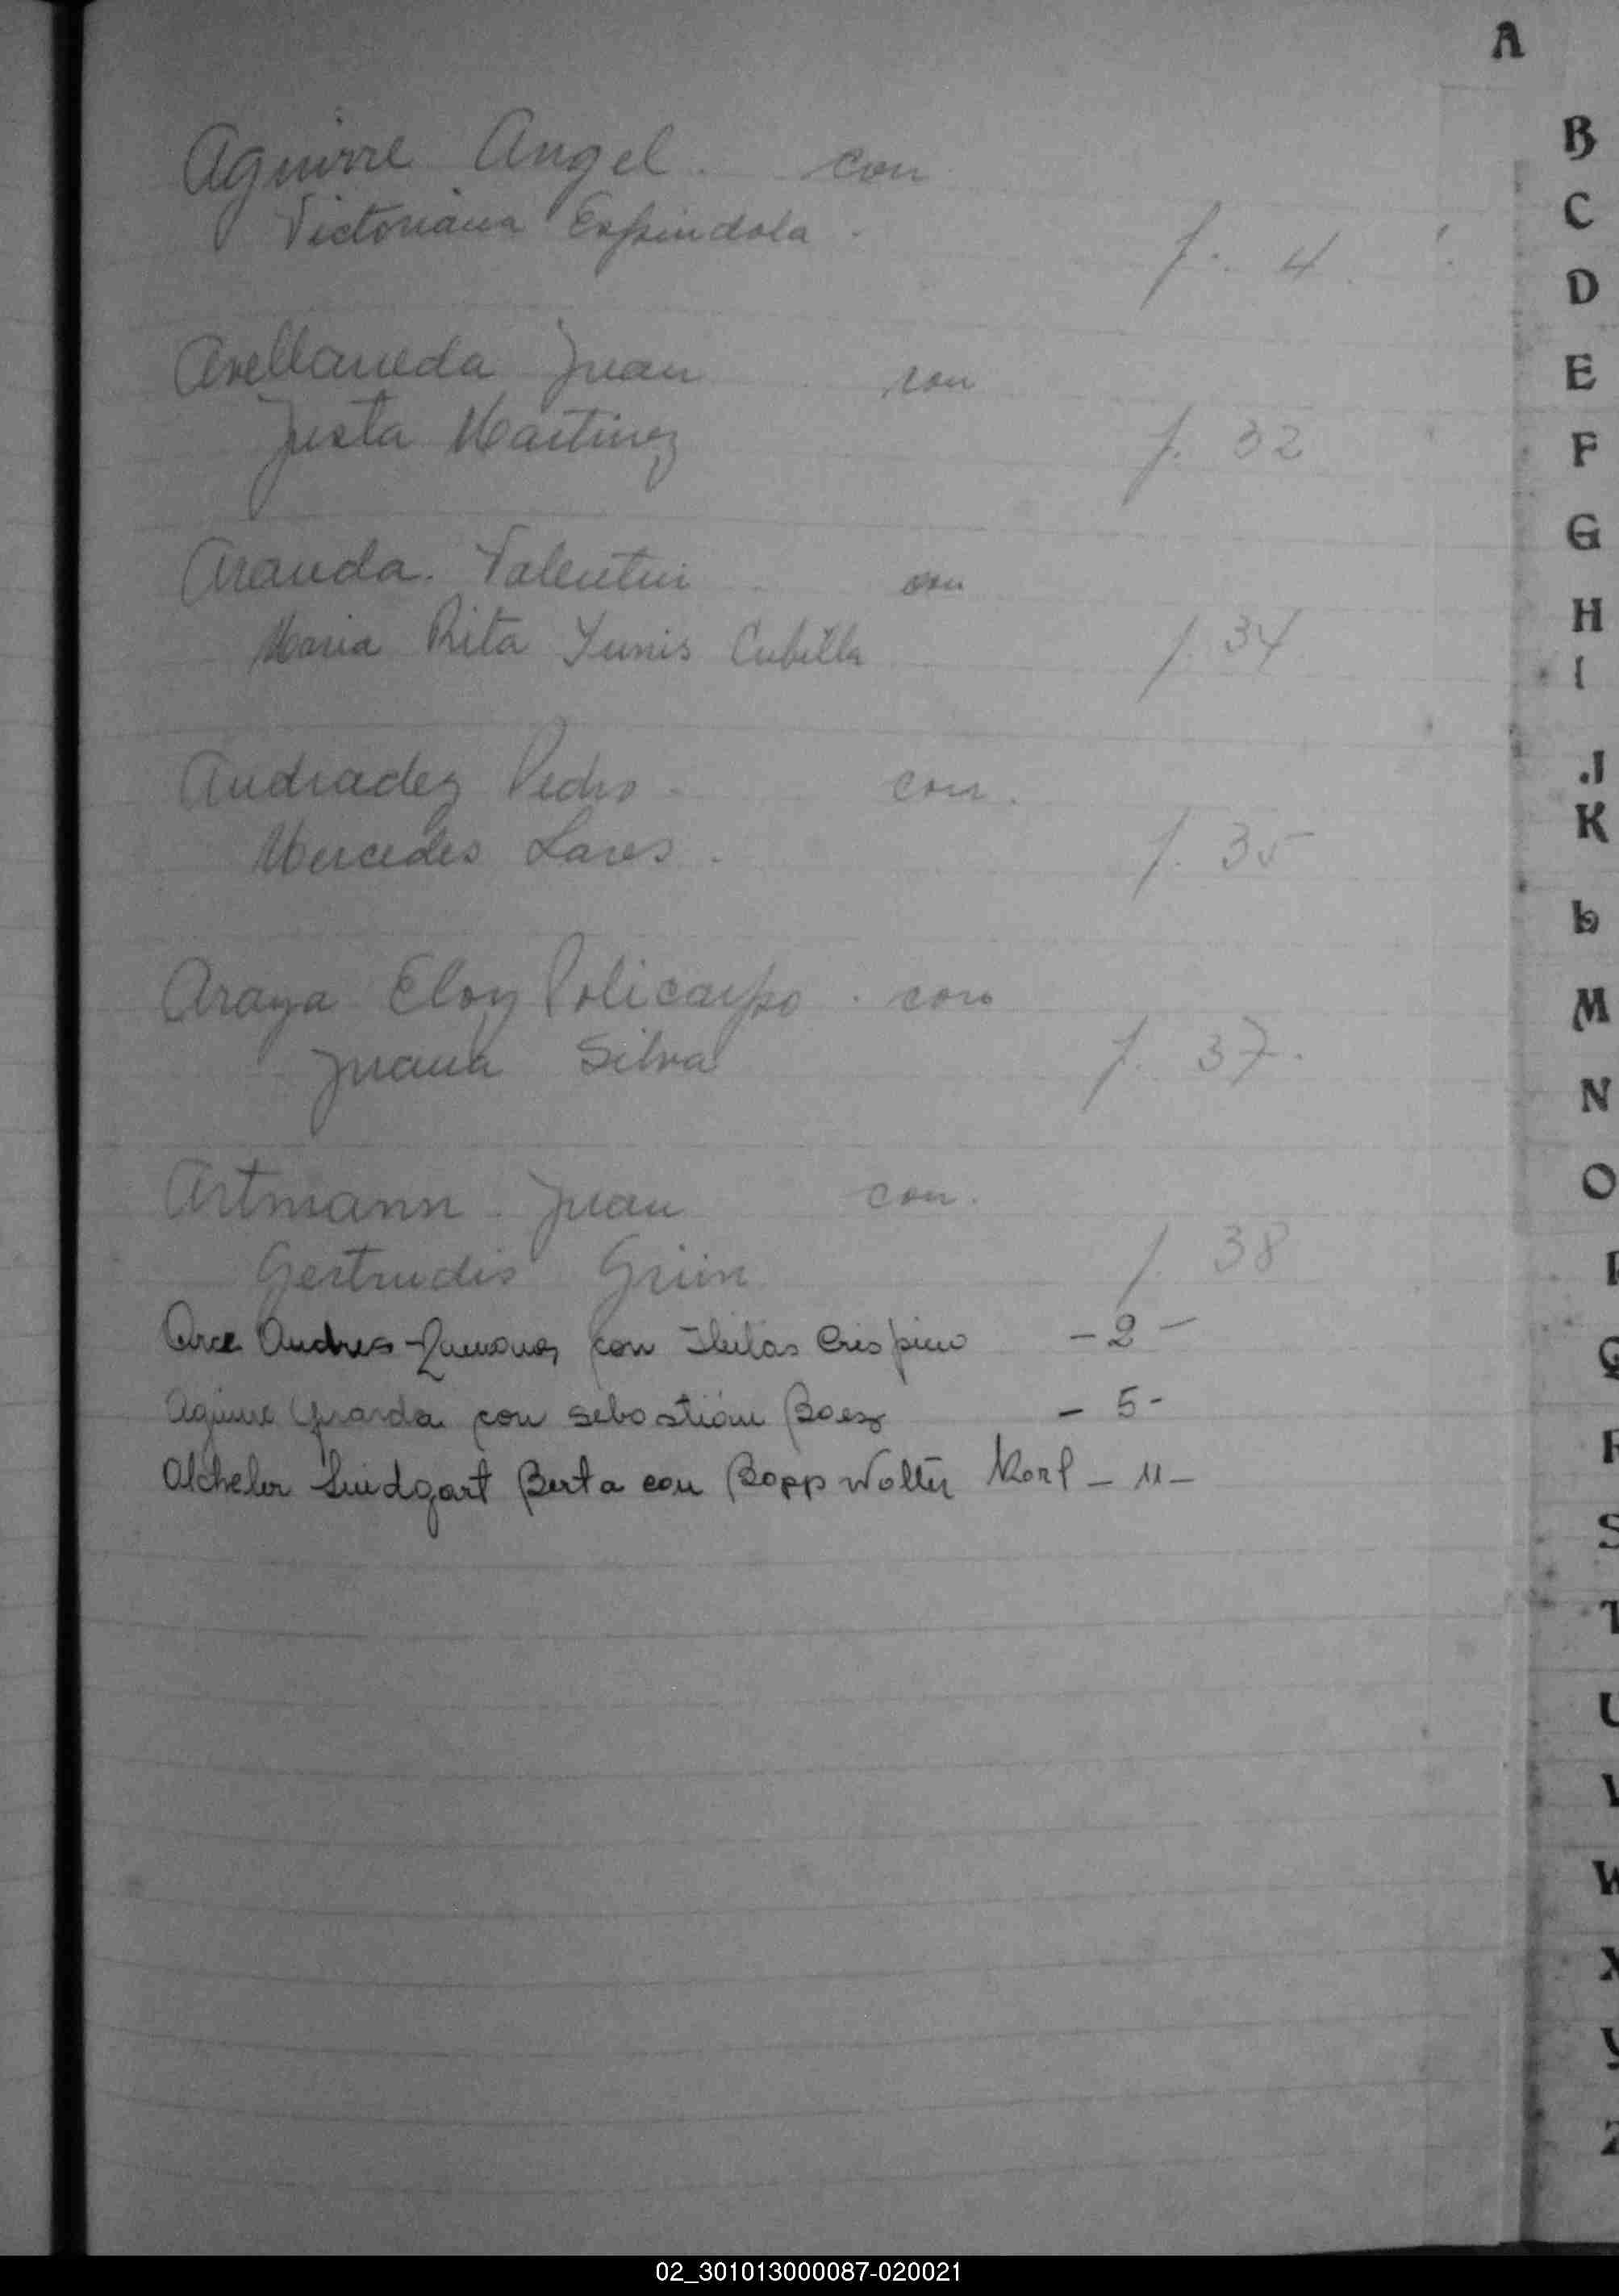 A
Aguirre Angel. con
Victoriana Espindola. f. 4
Avellaneda Juan con
Justa Martinez f. 32
Aranda. Valentin con
Maria Rita Yunis Cubilla f. 34
Andradez Pedro. con.
Mercedes Lares. f. 35
Araya Eloy Policarpo. con
Juana Silva f. 37.
Artmann. Juan con.
Gertrudis Grün f. 38
Arce Andres con Crispin - 2 -
Aguirre con Sebastián Baez - 5 -
Berta con Bopp Walter Karl - 11 -
B
C
D
E
F
G
H
I
J
K
L
M
N
O
P
Q
R
S
T
U
V
W
X
Y
Z
02_301013000087-020021